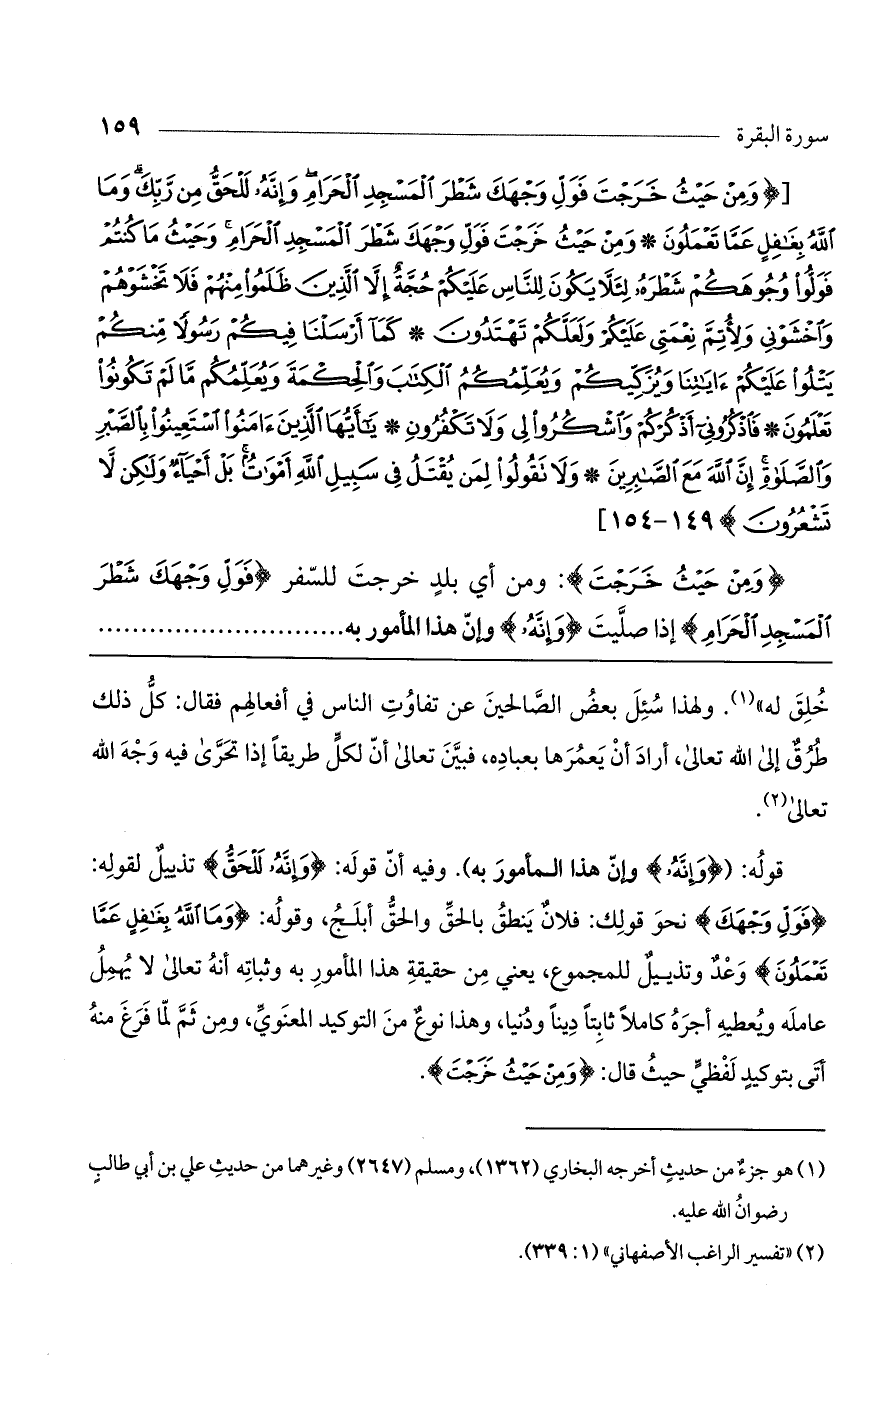 سورة البقرة ١٥٩
[﴿وَمِنْ حَيْثُ خَرَجْتَ فَوَلِّ وَجْهَكَ شَطْرَ ٱلْمَسْجِدِ ٱلْحَرَامِ ۖ وَإِنَّهُۥ لَلْحَقُّ مِن رَّبِّكَ ۗ وَمَا
ٱللَّهُ بِغَٰفِلٍ عَمَّا تَعْمَلُونَ * وَمِنْ حَيْثُ خَرَجْتَ فَوَلِّ وَجْهَكَ شَطْرَ ٱلْمَسْجِدِ ٱلْحَرَامِ ۚ وَحَيْثُ مَا كُنتُمْ
فَوَلُّوا۟ وُجُوهَكُمْ شَطْرَهُۥ لِئَلَّا يَكُونَ لِلنَّاسِ عَلَيْكُمْ حُجَّةٌ إِلَّا ٱلَّذِينَ ظَلَمُوا۟ مِنْهُمْ فَلَا تَخْشَوْهُمْ
وَٱخْشَوْنِى وَلِأُتِمَّ نِعْمَتِى عَلَيْكُمْ وَلَعَلَّكُمْ تَهْتَدُونَ * كَمَآ أَرْسَلْنَا فِيكُمْ رَسُولًا مِّنكُمْ
يَتْلُوا۟ عَلَيْكُمْ ءَايَٰتِنَا وَيُزَكِّيكُمْ وَيُعَلِّمُكُمُ ٱلْكِتَٰبَ وَٱلْحِكْمَةَ وَيُعَلِّمُكُم مَّا لَمْ تَكُونُوا۟
تَعْلَمُونَ * فَٱذْكُرُونِىٓ أَذْكُرْكُمْ وَٱشْكُرُوا۟ لِى وَلَا تَكْفُرُونِ * يَٰٓأَيُّهَا ٱلَّذِينَ ءَامَنُوا۟ ٱسْتَعِينُوا۟ بِٱلصَّبْرِ
وَٱلصَّلَوٰةِ ۚ إِنَّ ٱللَّهَ مَعَ ٱلصَّٰبِرِينَ * وَلَا تَقُولُوا۟ لِمَن يُقْتَلُ فِى سَبِيلِ ٱللَّهِ أَمْوَٰتٌۢ ۚ بَلْ أَحْيَآءٌ وَلَٰكِن لَّا
تَشْعُرُونَ﴾ ١٤٩-١٥٤]
﴿وَمِنْ حَيْثُ خَرَجْتَ﴾: ومن أي بلدٍ خرجتَ للسّفر ﴿فَوَلِّ وَجْهَكَ شَطْرَ
ٱلْمَسْجِدِ ٱلْحَرَامِ﴾ إذا صلَّيتَ ﴿وَإِنَّهُۥ﴾ وإنّ هذا المأمور به.............................
خُلِقَ له»(١). ولهذا سُئِلَ بعضُ الصَّالحينَ عن تفاوُتِ الناس في أفعالهِم فقال: كلُّ ذلك
طُرُقٌ إلىٰ الله تعالىٰ، أرادَ أنْ يَعمُرَها بعبادِه، فبيَّنَ تعالىٰ أنّ لكلٍّ طريقاً إذا تحَرَّىٰ فيه وَجْهَ الله
تعالىٰ(٢).
قولُه: (﴿وَإِنَّهُۥ﴾ وإنّ هذا المأمورَ به). وفيه أنّ قولَه: ﴿وَإِنَّهُۥ لَلْحَقُّ﴾ تذييلٌ لقولِه:
﴿فَوَلِّ وَجْهَكَ﴾ نحوَ قولِك: فلانٌ يَنطقُ بالحقِّ والحقُّ أبلَجُ، وقولُه: ﴿وَمَا ٱللَّهُ بِغَٰفِلٍ عَمَّا
تَعْمَلُونَ﴾ وَعْدٌ وتذييلٌ للمجموع، يعني مِن حقيقةِ هذا المأمورِ به وثباتِه أنهُ تعالىٰ لا يُهمِلُ
عاملَه ويُعطيهِ أجرَهُ كاملاً ثابتاً دِيناً ودُنيا، وهذا نوعٌ منَ التوكيد المعنَويِّ، ومِن ثَمَّ لمّا فَرَغَ منهُ
أتَى بتوكيدٍ لَفْظيٍّ حيثُ قال: ﴿وَمِنْ حَيْثُ خَرَجْتَ﴾.
(١) هو جزءٌ من حديثٍ أخرجه البخاري (١٣٦٢)، ومسلم (٢٦٤٧) وغيرهما من حديثِ علي بن أبي طالبٍ
رضوانُ الله عليه.
(٢) «تفسير الراغب الأصفهاني» (١: ٣٣٩).